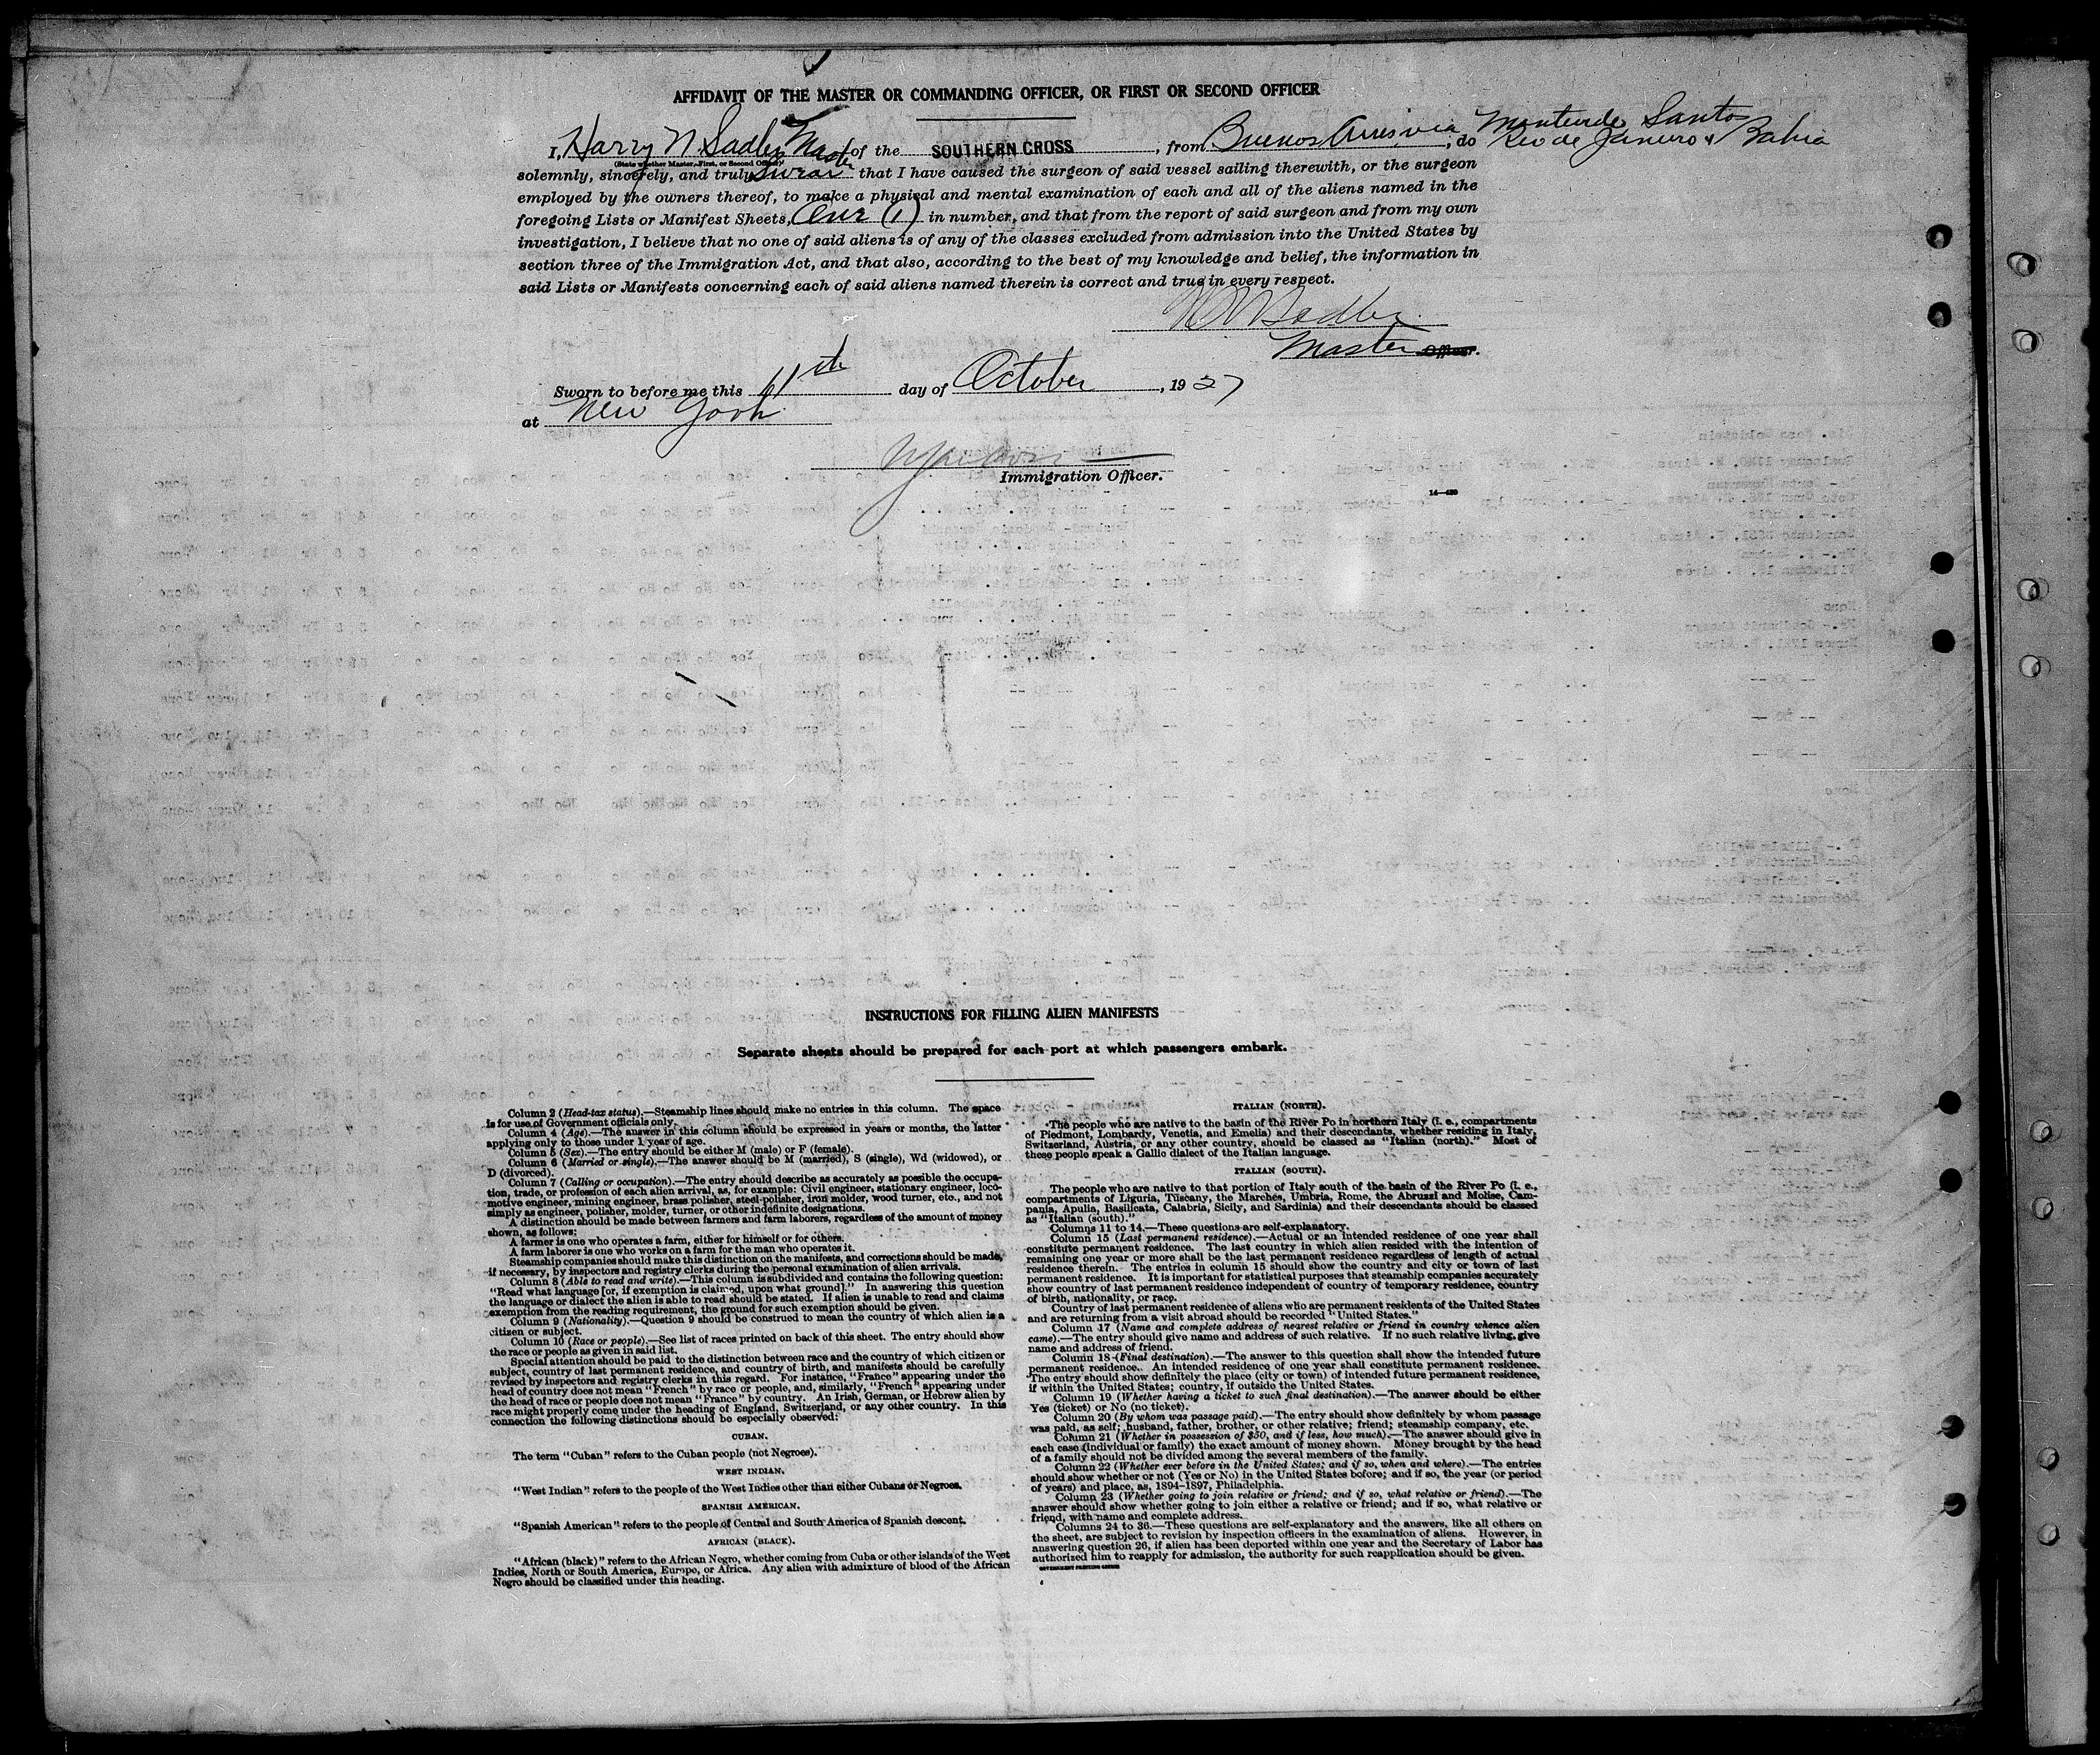 AFFIDAVIT OF THE MASTER OR COMMANDING OFFICER, OR FIRST OR SECOND OFFICER
I, Harry N Sadler Master of the SOUTHERN CROSS, from Buenos Aires via, do Montevideo Santos
Rio de Janeiro & Bahia
(State whether Master, First, or Second Officer)
solemnly, sincerely, and truly Swear that I have caused the surgeon of said vessel sailing therewith, or the surgeon
employed by the owners thereof, to make a physical and mental examination of each and all of the aliens named in the
foregoing Lists or Manifest Sheets, One (1) in number, and that from the report of said surgeon and from my own
investigation, I believe that no one of said aliens is of any of the classes excluded from admission into the United States by
section three of the Immigration Act, and that also, according to the best of my knowledge and belief, the information in
said Lists or Manifests concerning each of said aliens named therein is correct and true in every respect.
Sadler
Master Officer.
Sworn to before me this 11th day of October, 1927
at New York
Immigration Officer.
14—430
INSTRUCTIONS FOR FILLING ALIEN MANIFESTS
Separate sheets should be prepared for each port at which passengers embark.
Column 2 (Head-tax status).—Steamship lines should make no entries in this column. The space
is for use of Government officials only.
Column 4 (Age).—The answer in this column should be expressed in years or months, the latter
applying only to those under 1 year of age.
Column 5 (Sex).—The entry should be either M (male) or F (female).
Column 6 (Married or single).—The answer should be M (married), S (single), Wd (widowed), or
D (divorced).
Column 7 (Calling or occupation).—The entry should describe as accurately as possible the occupa-
tion, trade, or profession of each alien arrival, as, for example: Civil engineer, stationary engineer, loco-
motive engineer, mining engineer, brass polisher, steel-polisher, iron molder, wood turner, etc., and not
simply as engineer, polisher, molder, turner, or other indefinite designations.
A distinction should be made between farmers and farm laborers, regardless of the amount of money
shown, as follows:
A farmer is one who operates a farm, either for himself or for others.
A farm laborer is one who works on a farm for the man who operates it.
Steamship companies should make this distinction on the manifests, and corrections should be made,
if necessary, by inspectors and registry clerks during the personal examination of alien arrivals.
Column 8 (Able to read and write).—This column is subdivided and contains the following question:
"Read what language [or, if exemption is claimed, upon what ground]." In answering this question
the language or dialect the alien is able to read should be stated. If alien is unable to read and claims
exemption from the reading requirement, the ground for such exemption should be given.
Column 9 (Nationality).—Question 9 should be construed to mean the country of which alien is a
citizen or subject.
Column 10 (Race or people).—See list of races printed on back of this sheet. The entry should show
the race or people as given in said list.
Special attention should be paid to the distinction between race and the country of which citizen or
subject, country of last permanent residence, and country of birth, and manifests should be carefully
revised by inspectors and registry clerks in this regard. For instance, "France" appearing under the
head of country does not mean "French" by race or people, and, similarly, "French" appearing under
the head of race or people does not mean "France" by country. An Irish, German, or Hebrew alien by
race might properly come under the heading of England, Switzerland, or any other country. In this
connection the following distinctions should be especially observed:
CUBAN.
The term "Cuban" refers to the Cuban people (not Negroes).
WEST INDIAN.
"West Indian" refers to the people of the West Indies other than either Cubans or Negroes.
SPANISH AMERICAN.
"Spanish American" refers to the people of Central and South America of Spanish descent.
AFRICAN (BLACK).
"African (black)" refers to the African Negro, whether coming from Cuba or other islands of the West
Indies, North or South America, Europe, or Africa. Any alien with admixture of blood of the African
Negro should be classified under this heading.
ITALIAN (NORTH).
The people who are native to the basin of the River Po in northern Italy (i. e., compartments
of Piedmont, Lombardy, Venetia, and Emelia) and their descendants, whether residing in Italy,
Switzerland, Austria, or any other country, should be classed as "Italian (north)." Most of
these people speak a Gallic dialect of the Italian language.
ITALIAN (SOUTH).
The people who are native to that portion of Italy south of the basin of the River Po (i. e.,
compartments of Liguria, Tuscany, the Marches, Umbria, Rome, the Abruzzi and Molise, Cam-
pania, Apulia, Basilicata, Calabria, Sicily, and Sardinia) and their descendants should be classed
as "Italian (south)."
Columns 11 to 14.—These questions are self-explanatory.
Column 15 (Last permanent residence).—Actual or an intended residence of one year shall
constitute permanent residence. The last country in which alien resided with the intention of
remaining one year or more shall be the last permanent residence regardless of length of actual
residence therein. The entries in column 15 should show the country and city or town of last
permanent residence. It is important for statistical purposes that steamship companies accurately
show country of last permanent residence independent of country of temporary residence, country
of birth, nationality, or race.
Country of last permanent residence of aliens who are permanent residents of the United States
and are returning from a visit abroad should be recorded "United States."
Column 17 (Name and complete address of nearest relative or friend in country whence alien
came).—The entry should give name and address of such relative. If no such relative living, give
name and address of friend.
Column 18 (Final destination).—The answer to this question shall show the intended future
permanent residence. An intended residence of one year shall constitute permanent residence.
The entry should show definitely the place (city or town) of intended future permanent residence,
if within the United States; country, if outside the United States.
Column 19 (Whether having a ticket to such final destination).—The answer should be either
Yes (ticket) or No (no ticket).
Column 20 (By whom was passage paid).—The entry should show definitely by whom passage
was paid, as self, husband, father, brother, or other relative; friend; steamship company, etc.
Column 21 (Whether in possession of $50, and if less, how much).—The answer should give in
each case (individual or family) the exact amount of money shown. Money brought by the head
of a family should not be divided among the several members of the family.
Column 22 (Whether ever before in the United States; and if so, when and where).—The entries
should show whether or not (Yes or No) in the United States before; and if so, the year (or period
of years) and place, as, 1894-1897, Philadelphia.
Column 23 (Whether going to join relative or friend; and if so, what relative or friend).—The
answer should show whether going to join either a relative or friend; and if so, what relative or
friend, with name and complete address.
Columns 24 to 36.—These questions are self-explanatory and the answers, like all others on
the sheet, are subject to revision by inspection officers in the examination of aliens. However, in
answering question 26, if alien has been deported within one year and the Secretary of Labor has
authorized him to reapply for admission, the authority for such reapplication should be given.
GOVERNMENT PRINTING OFFICE